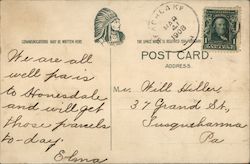 COMMUNICATIONS MAY BE WRITTEN HERE
THE SPACE BELOW IS RESERVED FOR
MAR
1908
POST CARD.
ADDRESS.
We are all
well pa is
to Honesdale
and will get
those parcels
to-day.
Elma
Mr. Will Hiller
37 Grand St,
Susquehanna
Pa